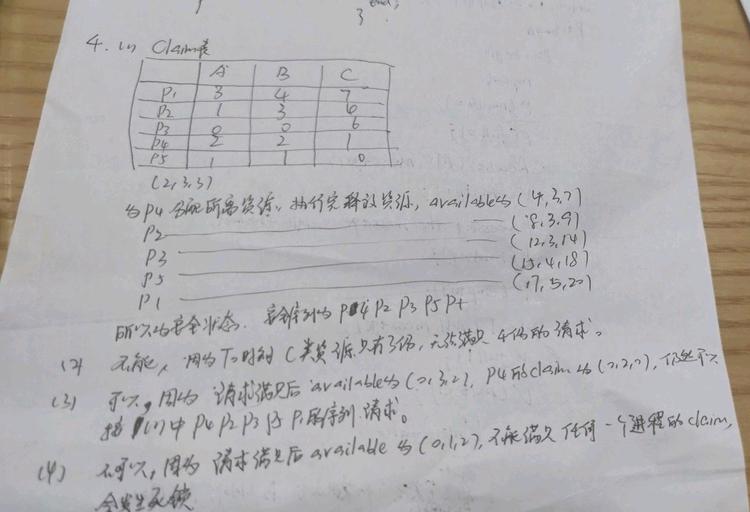 end;
}
4. (1) Claim表
A B C
P1 3 4 7
P2 1 3 6
P3 0 0 6
P4 2 2 1
P5 1 1 0
(2,3,3)
为P4分配所需资源,执行完释放资源,available为(4,3,7)
P2 (8,3,9)
P3 (12,3,14)
P5 (15,4,18)
P1 (17,5,20)
所以为安全状态. 安全序列为 P4 P2 P3 P5 P1
(2) 不能,因为T0时刻C类资源只有3份,无法满足4份的请求。
(3) 可以,因为请求满足后available为(0,3,2),P4的claim为(0,2,0),仍然可以
按(1)中P4 P2 P3 P5 P1的序列请求。
(4) 不可以,因为请求满足后available为(0,1,2),不能满足任何一个进程的claim,
会发生死锁